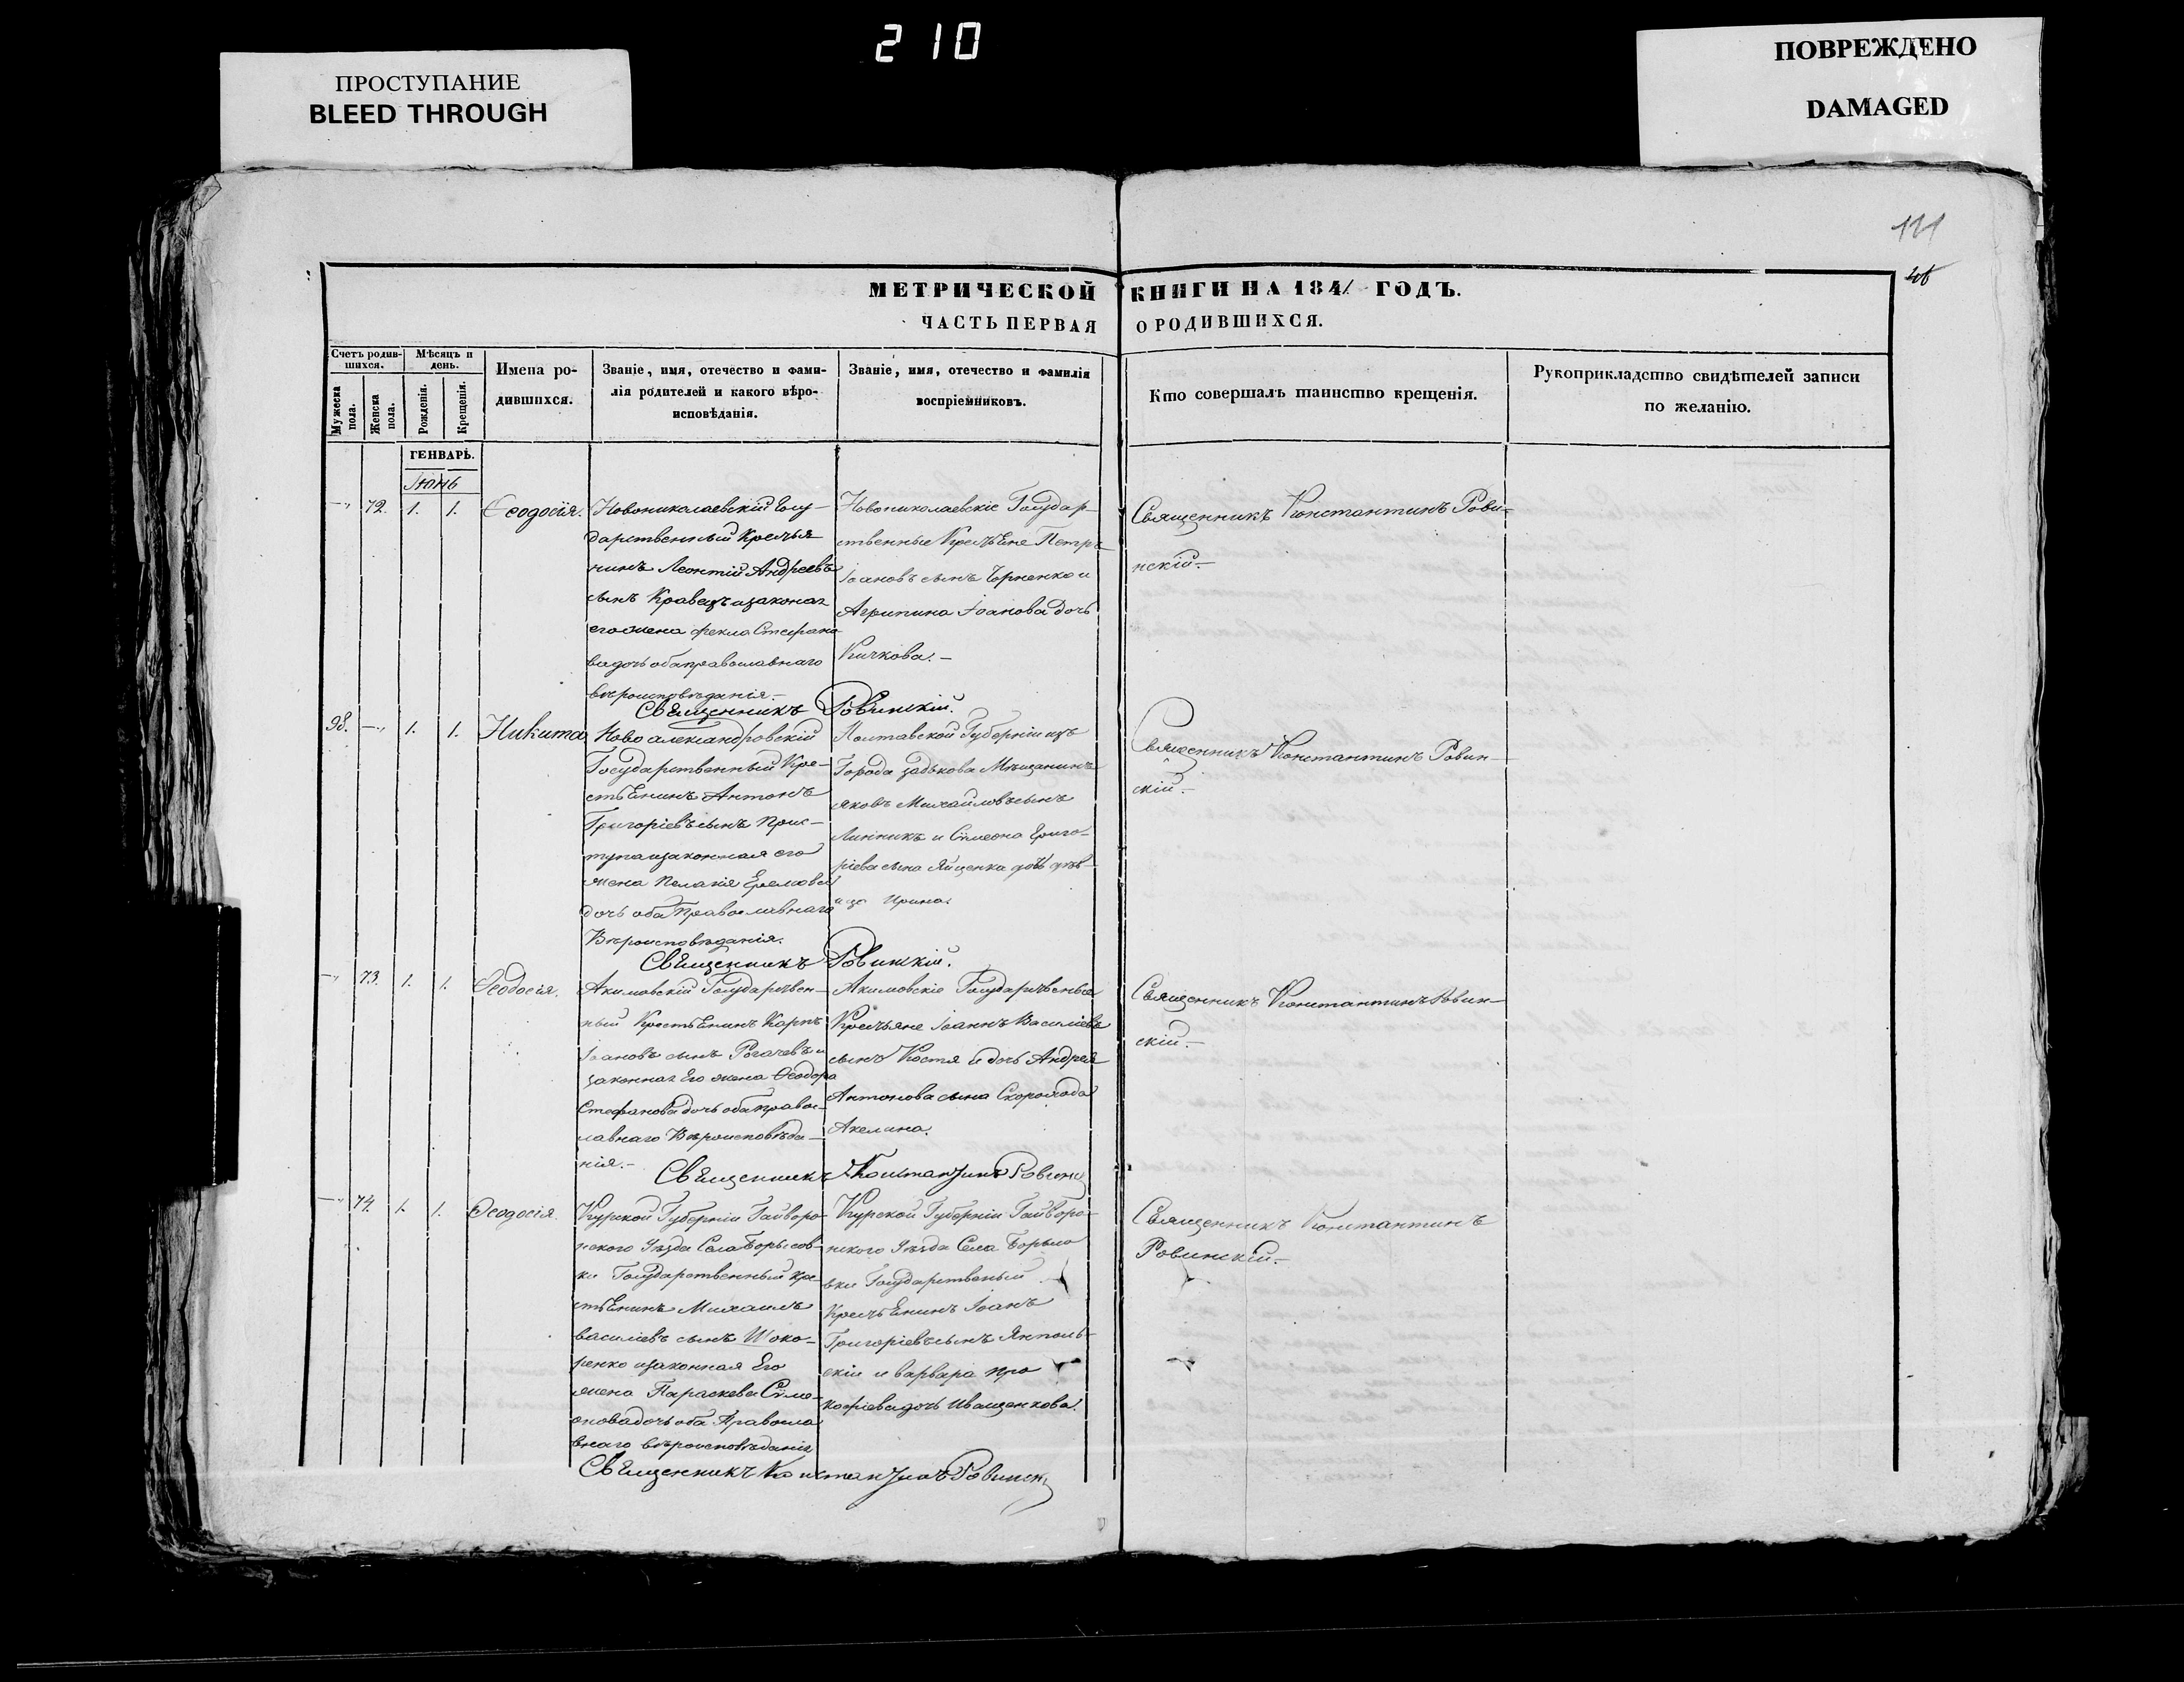 210
ПРОСТУПАНИЕ
BLEED THROUGH
ПОВРЕЖДЕНО
DAMAGED
МЕТРИЧЕСКОЙ КНИГИ НА 1841 ГОДЪ.
ЧАСТЬ ПЕРВАЯ О РОДИВШИХСЯ.
Счетъ родив-
шихся.
Мужеска
пола.
Женска
пола.
Мѣсяцъ и
день.
Рожденія.
Крещенія.
Имена ро-
дившихся.
Званіе, имя, отечество и фами-
лія родителей и какого вѣро-
исповѣданія.
Званіе, имя, отечество и фамилія
воспріемниковъ.
Кто совершалъ таинство крещенія.
Рукоприкладство свидѣтелей записи
по желанію.
ГЕНВАРЬ.
Іюнь
72. 1. 1. Ѳеодосія.
Новониколаевскій Госу-
дарственный Крестья
нинъ Леонтій Андреевъ
сынъ Кравецъ изаконая
егожена фекла Стефано
вадочь обаправославнаго
вѣроисповѣданія.-
Новониколаевскіе Государ-
ственные КрестЬяне Петръ
Іоановъ сынъ Чорненко и
Агрипина Іоанова дочь
Кичкова.-
Священникъ Константинъ Рови-
нскій.-
Священникъ Ровинскій.
98. 1. 1. Никита
Ново александровскій
Государственный Кре-
стьЕнинъ Антонъ
Григоріевъсынъ Прис-
тупаизаконная его
жена Пелагія Еремова
дочь оба Православнаго
Вѣроисповѣданія.
Полтавской Губерніи изъ
Города Мѣщанинъ
яковъ Михайловъсынъ
Линникъ и Сімеона Григо-
ріева сына Яценка дочь дѣв-
ица Ирина.
Священникъ Константинъ Ровин-
скій.-
Священникъ Ровинскій.
73. 1. 1. Ѳеодосія.
Акимовскій Государствен-
ный КрестьЕнинъ Карпъ
Іоановъ сынъ Рогачевъ и
законная Его жена Ѳеодора
Стефанова дочь оба правос-
лавнаго Вѣроисповѣда-
нія.-
Акимовскіе Государственые
Крестьяне Іоаннъ Василіевъ
сынъ Костя и дочь Андрея
Антонова сына Скорохода
Акелина.
Священникъ Константинъ Ровин-
скій.-
Священникъ Константинъ Ровинс
74. 1. 1. Ѳеодосія
Курской Губерніи Гайворо-
нского Уѣзда Села Борысов-
ки Государственный кре-
стьЕнинъ Михаилъ
василіевъ сынъ Шоко-
ренко изаконная Его
жена Параскева Сіме-
оновадочь оба Правосла
внаго вѣроисповѣданія
Курской Губерніи Гайворо-
нского Уѣзда Села Борысо
вки Государственый
КрестьЕнинъ Іоанъ
Григоріевъсынъ Ямполь-
скій и варвара Про
кофіевадочь Иващенкова.
Священникъ Константинъ
Ровинскій.-
Священникъ Константинъ Ровинск